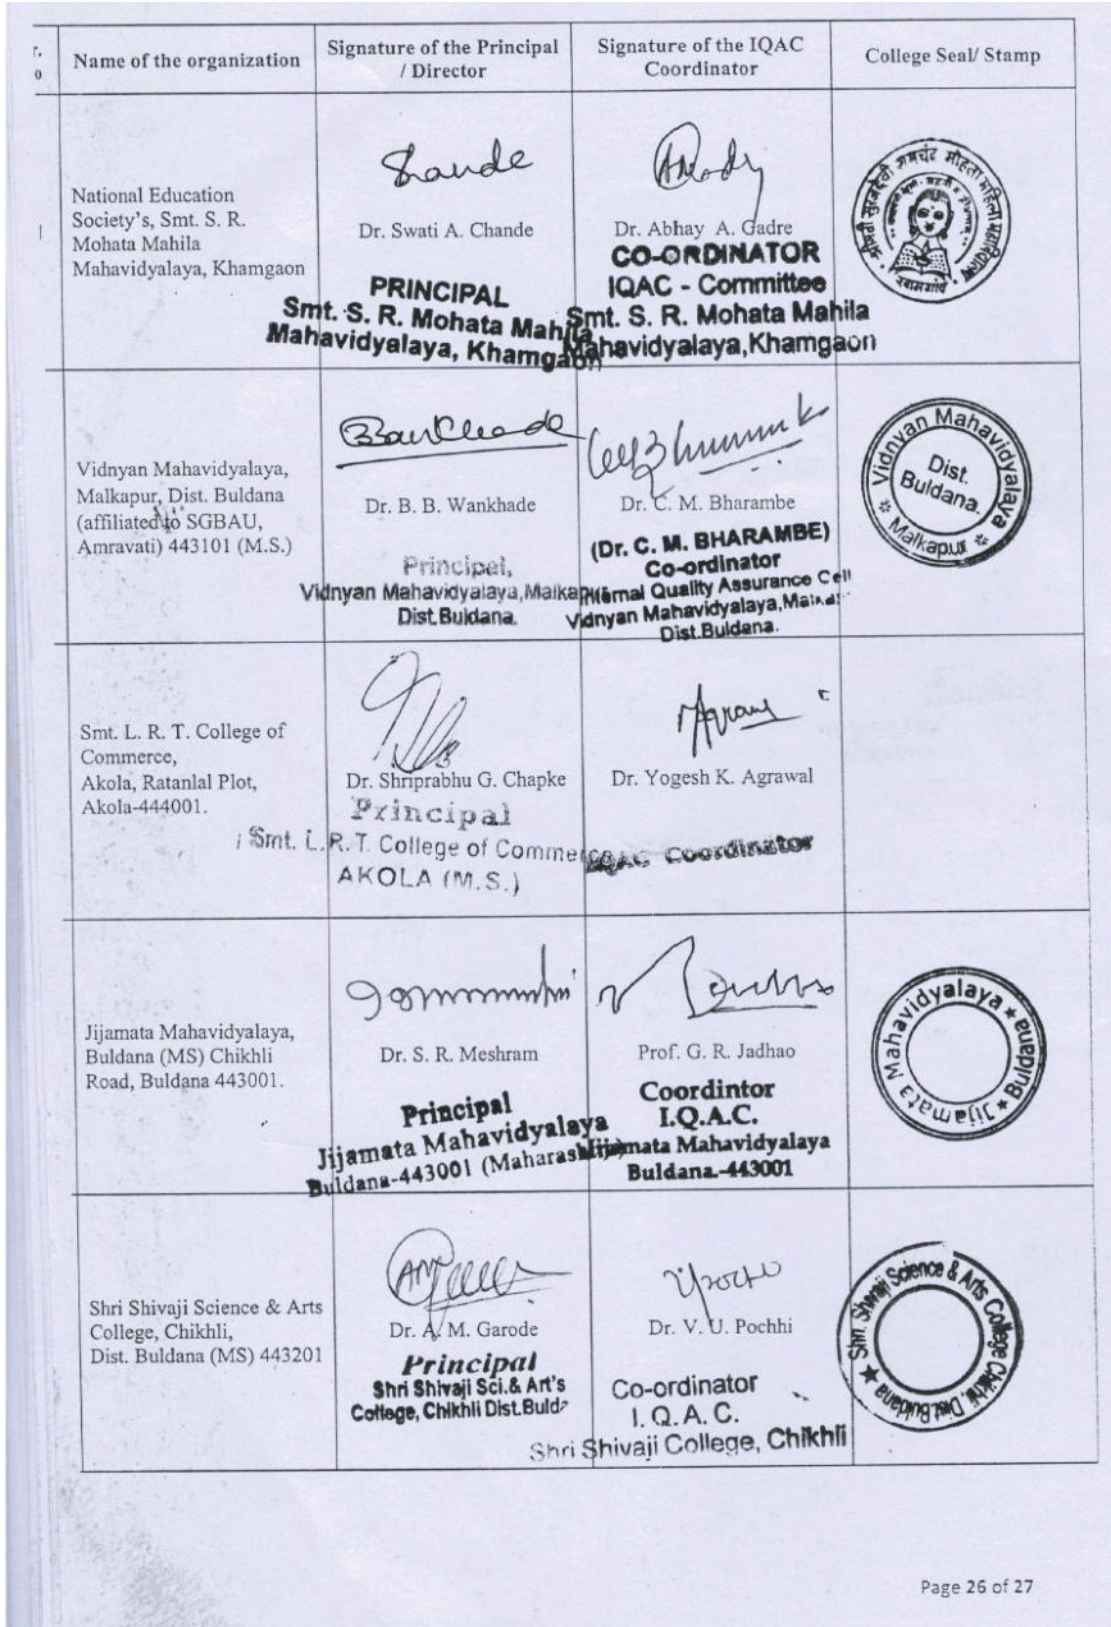 r.
o
Name of the organization
Signature of the Principal
/ Director
Signature of the IQAC
Coordinator
College Seal/ Stamp
1
National Education
Society's, Smt. S. R.
Mohata Mahila
Mahavidyalaya, Khamgaon
Chande
Dr. Swati A. Chande
PRINCIPAL
Smt. S. R. Mohata Mahila
Mahavidyalaya, Khamgaon
Dr. Abhay A. Gadre
CO-ORDINATOR
IQAC - Committee
Smt. S. R. Mohata Mahila
Mahavidyalaya,Khamgaon
श्रीमती सुरजदेवी रामचंद्र मोहता महिला महाविद्यालय
खामगांव
Vidnyan Mahavidyalaya,
Malkapur, Dist. Buldana
(affiliated to SGBAU,
Amravati) 443101 (M.S.)
Dr. B. B. Wankhade
Principal,
Vidnyan Mahavidyalaya,Malkapur
Dist.Buldana.
Dr. C. M. Bharambe
(Dr. C. M. BHARAMBE)
Co-ordinator
Internal Quality Assurance Cell
Vidnyan Mahavidyalaya,
Dist.Buldana.
Vidnyan Mahavidyalaya
Dist.
Buldana.
Malkapur
Smt. L. R. T. College of
Commerce,
Akola, Ratanlal Plot,
Akola-444001.
Dr. Shriprabhu G. Chapke
Principal
Smt. L.R.T. College of Commerce
AKOLA (M.S.)
Dr. Yogesh K. Agrawal
IQAC Coordinator
Jijamata Mahavidyalaya,
Buldana (MS) Chikhli
Road, Buldana 443001.
Dr. S. R. Meshram
Principal
Jijamata Mahavidyalaya
Buldana-443001 (Maharashtra)
Prof. G. R. Jadhao
Coordintor
I.Q.A.C.
Jijamata Mahavidyalaya
Buldana.-443001
Jijamata Mahavidyalaya ★ Buldana ★
Shri Shivaji Science & Arts
College, Chikhli,
Dist. Buldana (MS) 443201
Dr. A. M. Garode
Principal
Shri Shivaji Sci.& Art's
College, Chikhli Dist.Buld
Dr. V. U. Pochhi
Co-ordinator
I. Q. A. C.
Shri Shivaji College, Chikhli
Shri. Shivaji Science & Arts College Chikhli, Dist.Buldana ★
Page 26 of 27